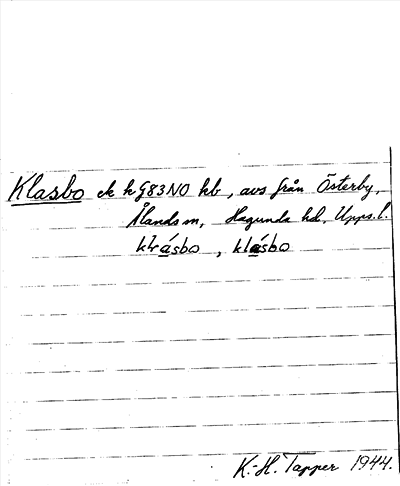 Klasbo ek k G83NO kb, avs från Österby,
Ålands sn, Hagunda hd, Upps. l.
klásbo, klásbo
K.-H. Tapper 1944.